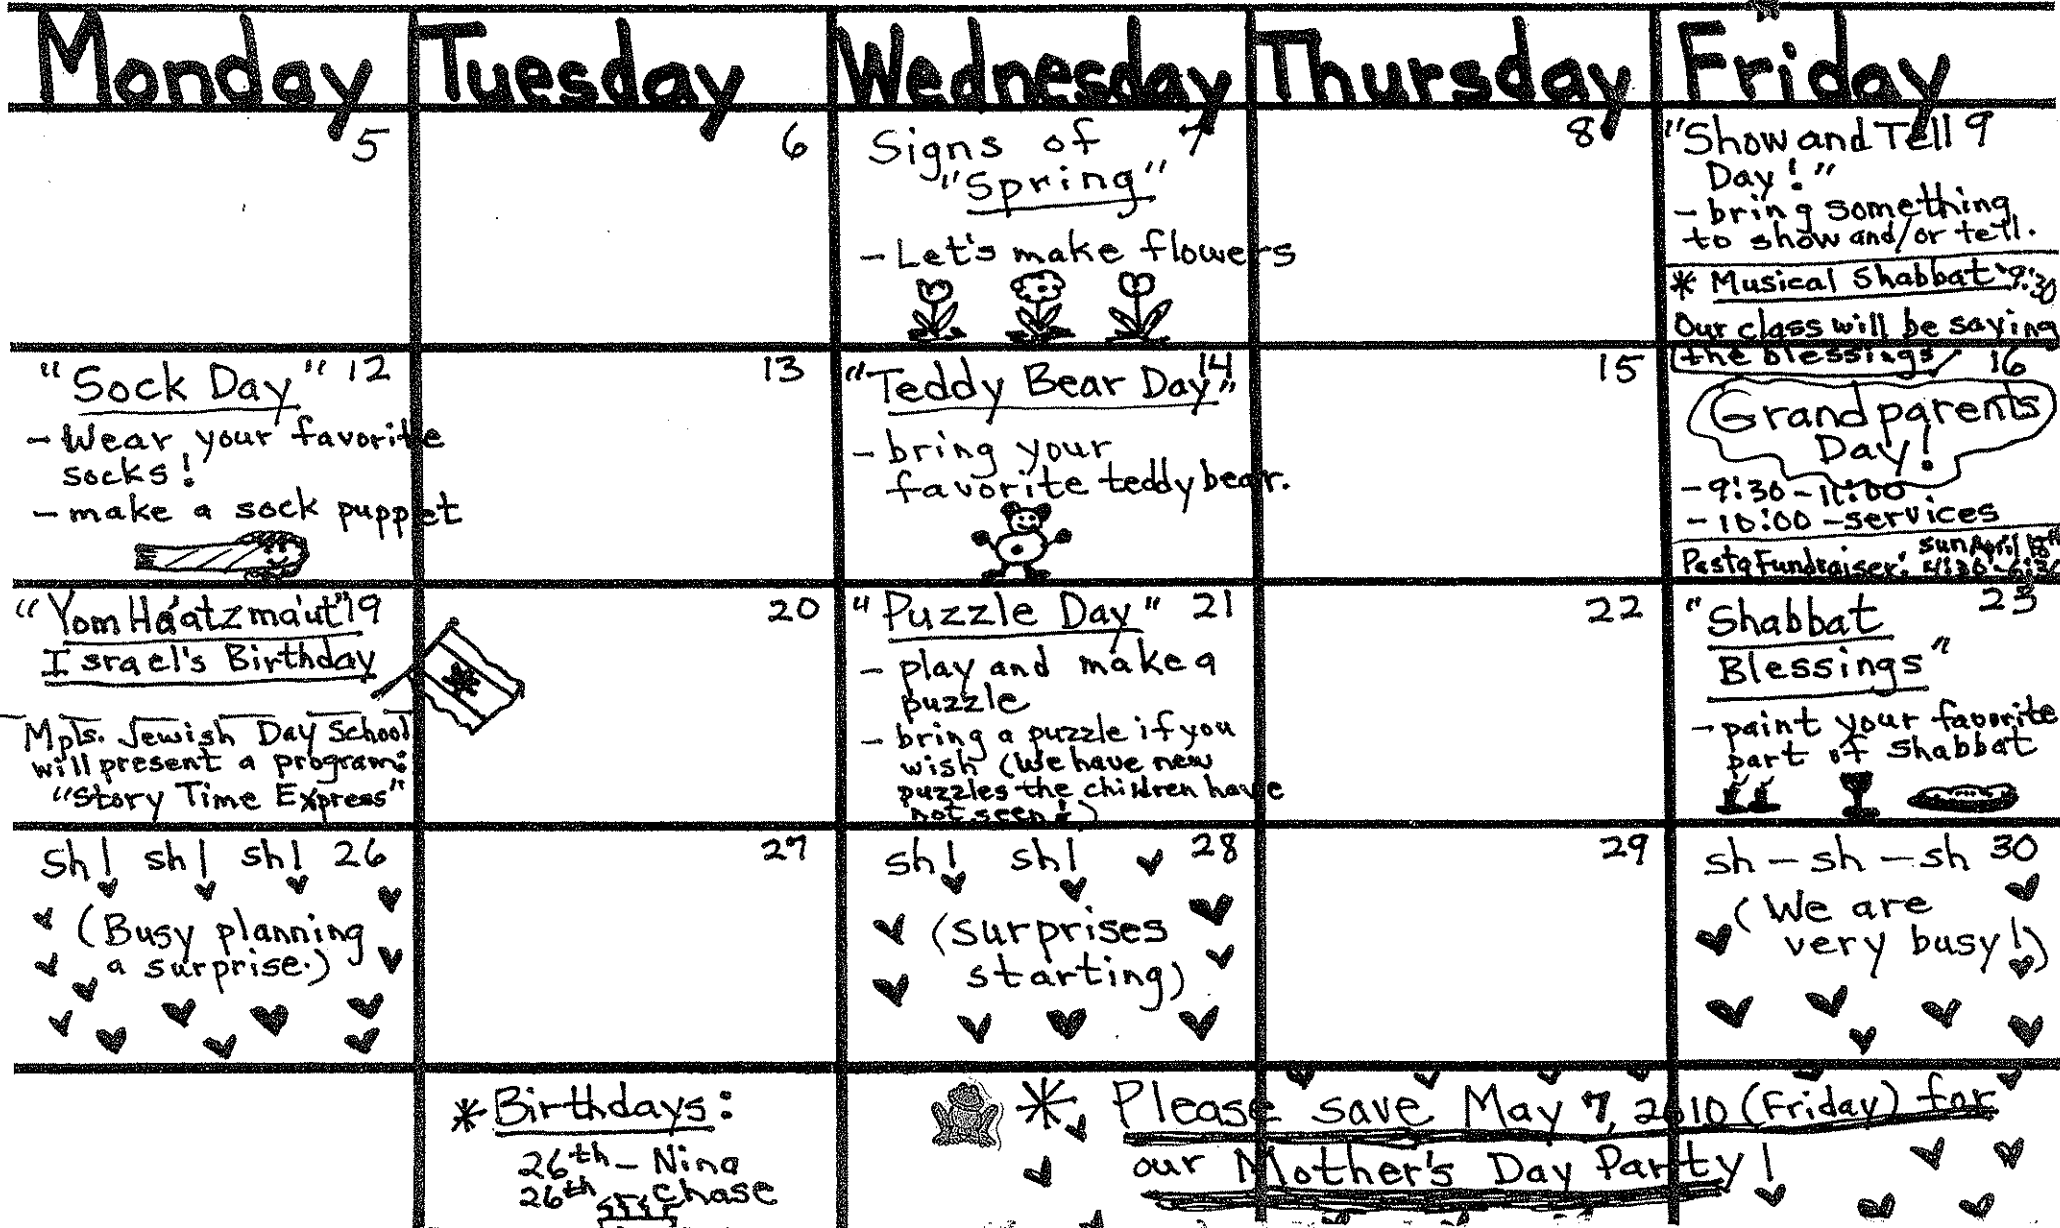 Monday Tuesday Wednesday Thursday Friday
5
6
Signs of 7
"Spring"
- Let's make flowers
8
"Show and Tell 9
Day!"
- bring something
to show and/or tell.
* Musical Shabbat 9:30
Our class will be saying
the blessings
"Sock Day" 12
- Wear your favorite
socks!
- make a sock puppet
13
14
"Teddy Bear Day"
- bring your
favorite teddy bear.
15
16
Grandparents
Day!
- 9:30 - 11:00
- 10:00 - services
Pasta Fundraiser: Sun April 18th
4:30 - 6:30
"Yom Ha'atzma'ut" 19
Israel's Birthday
Mpls. Jewish Day School
will present a program:
"Story Time Express"
20
"Puzzle Day" 21
- play and make a
puzzle
- bring a puzzle if you
wish (We have new
puzzles the children have
not seen!)
22
23
"Shabbat
Blessings"
- paint your favorite
part of Shabbat
sh! sh! sh! 26
(Busy planning
a surprise.)
27
sh! sh! 28
(surprises
starting)
29
sh - sh - sh 30
(We are
very busy!)
* Birthdays:
26th - Nina
26th - Chase
* Please save May 7, 2010 (Friday) for
our Mother's Day Party!